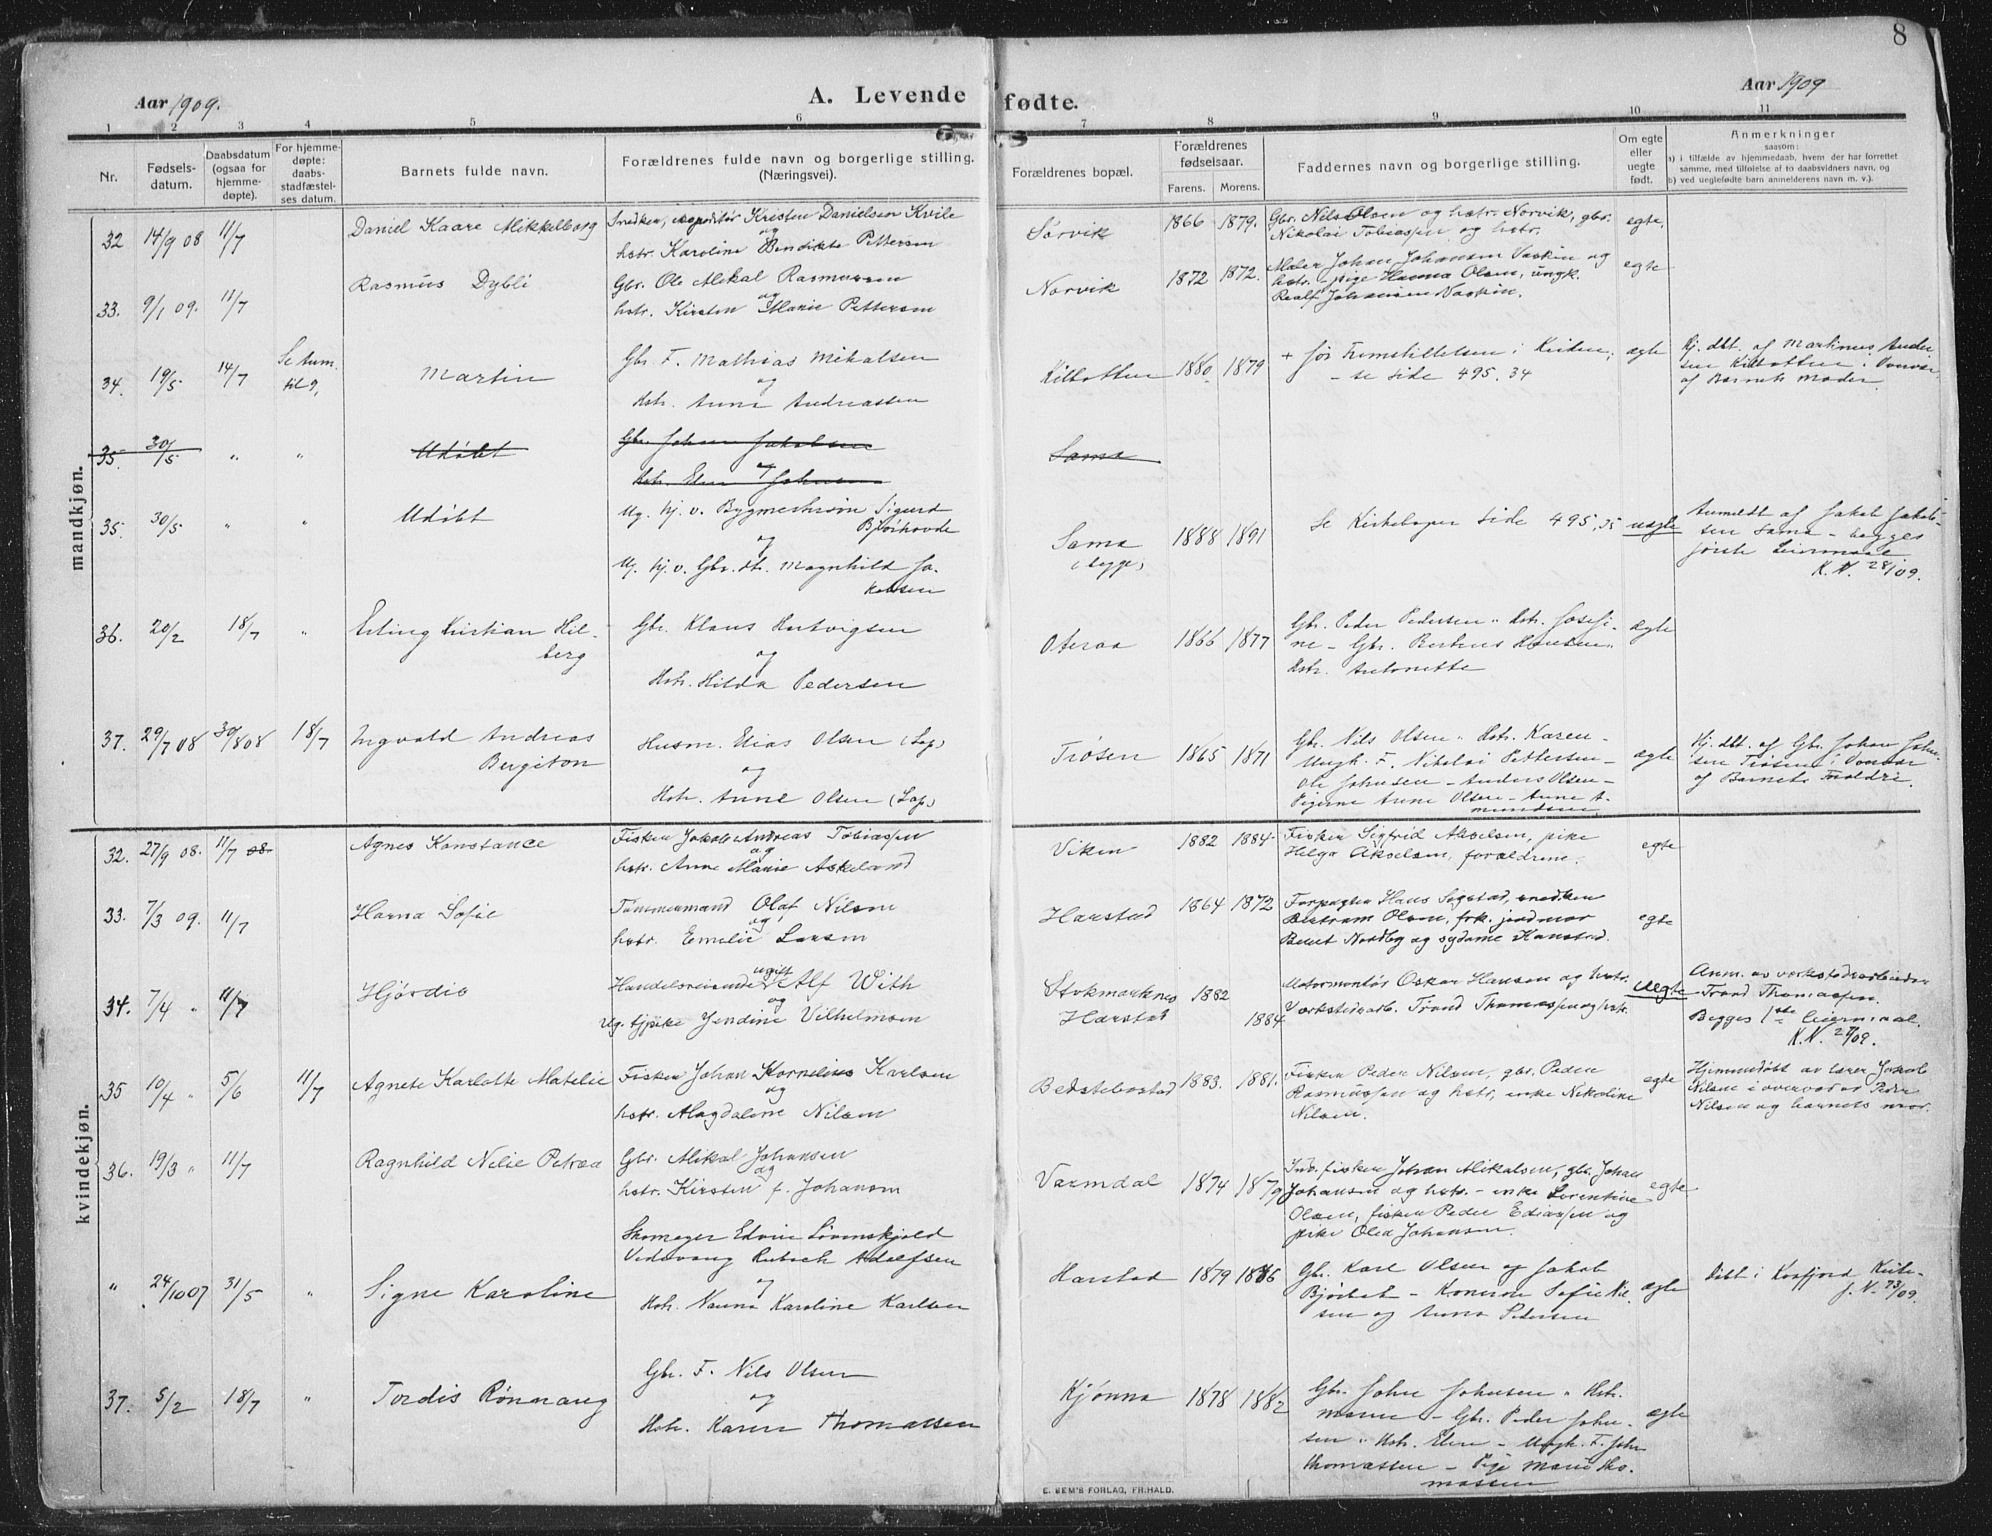 8
Aar 1909.
A. Levende fødte.
Aar 1909
1 2 3 4 5 6 7 8 9 10 11
Nr.
Fødsels-
datum.
Daabsdatum
(ogsaa for
hjemme-
døpte).
For hjemme-
døpte:
daabs-
stadfæstel-
ses datum.
Barnets fulde navn.
Forældrenes fulde navn og borgerlige stilling.
(Næringsvei).
Forældrenes bopæl.
Forældrenes
fødselsaar.
Farens. Morens.
Faddernes navn og borgerlige stilling.
Om egte
eller
uegte
født.
Anmerkninger
saasom:
a) i tilfælde av hjemmedaab, hvem der har forrettet
samme, med tilføielse af to daabsvidners navn, og
b) ved uegtefødte barn anmelderens navn m. v.).
mandkjøn.
32 14/9 08 11/7
Daniel Kaare Mikkelborg
Snedker, Kristen Danielsen Kvile
og
hstr. Karoline Bendikte Pettersen
Sørvik
1866 1879.
Gbr. Nils Olsen og hstr. Norvik, gbr.
Nikolai Tobiassen og hstr.
egte.
33. 9/1 09. 11/7
Rasmus Dybli
Gbr. Ole Mikal Rasmussen
og
hstr. Kirsten Marie Pettersen
Norvik
1872 1872.
Maler Johan Johansen Vaskin og
hstr. pige Hanna Olsen, ungk.
Johansen Vaskin.
egte
34. 19/5 14/7
Martin
Gbr. F. Mathias Mikalsen
og
Hstr. Anna Andreassen
Kilbotten
1880 1879
+ før Fremstillelsen i Kirken,
- se side 495. 34
ægte
Hj. dbt. af Martinus Ander-
sen Kilbotten i Overvær
af Barnets Moder.
35. 30/5 " "
Udøbt
Gbr. Johan Jakobsen
og
Hstr. Elen Johnsen
Sama
35. 30/5 " "
Udøbt
Ug. hj. v. Sigurd
Bjørhovde
og
Ug. hj. v. Gbr. dt. Magnhild Ja-
kobsen
Sama
(begge)
1888 1891
Se Kirkebogen side 495, 35
uægte
Anmeldt af Jakob Jakob-
sen Sama - begges
første Leiermaal
K. N. 28/09.
36. 20/2 18/7 "
Erling Kristian Hil-
berg
Gbr. Klaus Hartvigsen
og
Hstr. Hilda Pedersen
Oteraa
1866 1877
Gbr. Peder Pedersen " Hstr. Josefi-
ne - Gbr. Hansen "
Hstr. Antonette
ægte
37. 29/7 08 30/8 08 18/7
Ingvald Andreas
Bergiton
Husm. Elias Olsen (Lap)
og
Hstr. Anne Olsen (Lap)
Trøsen
1865 1871
Gbr. Nils Olsen " Hstr. Karen -
Ungk. F. Nikolai Pettersen -
Ole Johnsen - Anders Olsen -
Pigerne Anne Olsen - Anne A-
mundsen
ægte
Hj. dbt. af Gbr. Johan John-
sen Trøsen i Overvær
af Barnets Forældre.
kvindekjøn.
32. 27/9 08. 11/7 08
Agnes Konstance
Fisker Jakob Andreas Tobiassen
og
hstr. Anne Marie Askeland
Viken
1882 1884
Fisker Sigfrid Akselsen, pike
Helga Akselsen, forældrene.
egte
33. 7/3 09. 11/7
Harna Sofie
Tømmermand Olaf Nilsen
og
hstr. Emelie Larsen
Harstad
1864 1872
Forpagter Hans Segstad, snedker
Bertram Olsen, frk. jordmor
Beret Nordby og sydame Kanstad.
egte
34. 7/4 " 11/7
Hjørdis
ugift
Handelsreisende Alf With
og
Ug. tjpike Jendine Vilhelmsen
Stokmarknes
Harstad
1882
1884
Motormontør Oskar Hansen og hstr.
Verkstedsarb. Trond Thomassen og hstr.
uegte
Anm. av verkstedsarbeider
Trond Thomassen.
Begges 1ste leiermaal.
K. N. 27/09.
35 10/4 " 5/6 11/7
Agnete Karlotte Matelie
Fisker Johan Kornelius Karlsen
og
hstr. Magdaline Nilsen
Bedstebostad
1883. 1881.
Fisker Peder Nilsen, gbr. Peder
Rasmussen og hstr, enke Nikoline
Nilsen.
egte
Hjemmedøbt av lærer Jakob
Nilsen i overvær av Peder
Nilsen og barnets mor.
36. 19/3 " 11/7
Ragnhild Nelie Petrea
Gbr. Mikal Johansen
og
hstr. Kirsten f. Johansen
Varmdal
1874 1879
Inv. fisker Johan Mikalsen, gbr. Johan
Johansen og hstr. - enke Lorentine
Olsen, fisker Peder Ediassen og
pike Olea Johansen.
egte
" 24/10 07 31/5 "
Signe Karoline
Skomager Edvin Løvenskjold
Vedevang Rubach Adolfsen
og
Hstr. Nanna Karoline Karlsen
Harstad
1879 1886
Gbr. Karl Olsen og Jakob
Bjørbet - Konerne Sofie Nil-
sen og Anna Pedersen
ægte
Døbt i Kasfjord Kirke
f. N. 73/09.
37. 5/2 18/7 "
Tordis Rønnaug
Gbr. F. Nils Olsen
og
Hstr. Karen Thomassen
Kjønna
1878 1882
Gbr. John Johnsen " Hstr.
Maren - Gbr. Peder John-
sen " Hstr. Elen - Ungk. F. John
Thomassen - Pige Marie Tho-
massen
ægte
E. SEM'S FORLAG, FR.HALD.